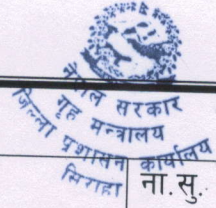 नेपाल सरकार
गृह मन्त्रालय
जिल्ला प्रशासन कार्यालय
सिराहा
ना.सु.